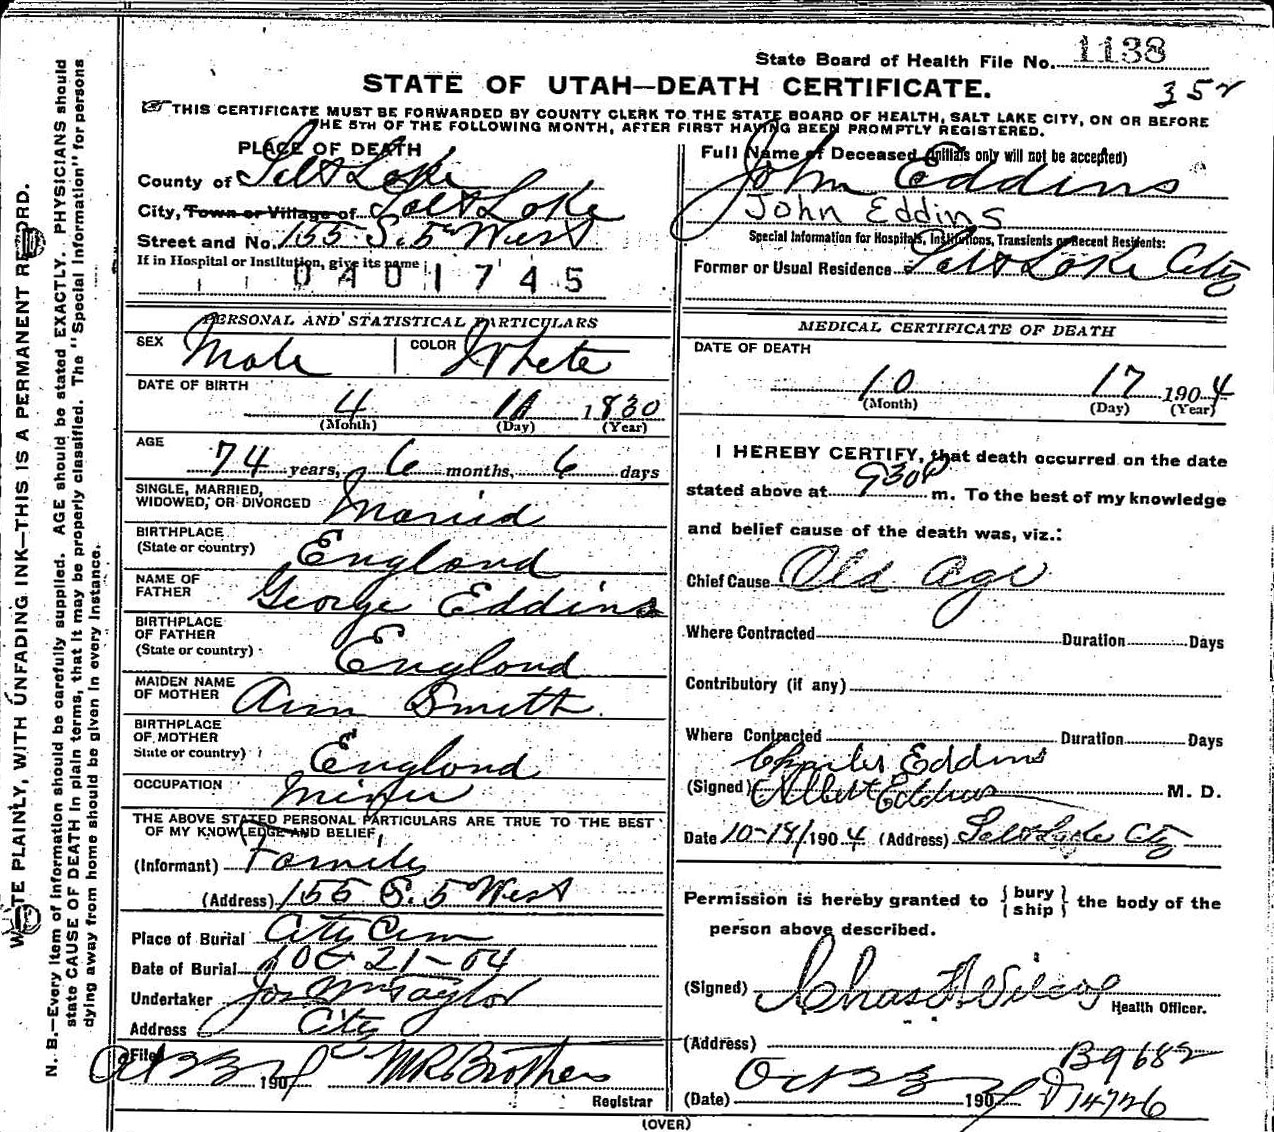 State Board of Health File No. 1138
352
STATE OF UTAH—DEATH CERTIFICATE.
THIS CERTIFICATE MUST BE FORWARDED BY COUNTY CLERK TO THE STATE BOARD OF HEALTH, SALT LAKE CITY, ON OR BEFORE
THE 5TH OF THE FOLLOWING MONTH, AFTER FIRST HAVING BEEN PROMPTLY REGISTERED.
PLACE OF DEATH
County of Salt Lake
City, Town or Village of Salt Lake
Street and No. 155 S. 5th West
If in Hospital or Institution, give its name
0401745
PERSONAL AND STATISTICAL PARTICULARS
SEX Male COLOR White
DATE OF BIRTH
4 11 1830
(Month) (Day) (Year)
AGE
74 years, 6 months, 6 days
SINGLE, MARRIED,
WIDOWED, OR DIVORCED Married
BIRTHPLACE
(State or country) England
NAME OF
FATHER George Eddins
BIRTHPLACE
OF FATHER
(State or country) England
MAIDEN NAME
OF MOTHER Ann Smith
BIRTHPLACE
OF MOTHER
State or country) England
OCCUPATION Miner
THE ABOVE STATED PERSONAL PARTICULARS ARE TRUE TO THE BEST
OF MY KNOWLEDGE AND BELIEF,
(Informant) Family
(Address) 155 S. 5 West
Place of Burial City Cem
Date of Burial Oct 21-04
Undertaker Jos Wm Taylor
Address City
Filed Oct 22 190
Registrar
Full Name of Deceased (Initials only will not be accepted)
John Eddins
John Eddins
Special Information for Hospitals, Institutions, Transients or Recent Residents:
Former or Usual Residence Salt Lake City
MEDICAL CERTIFICATE OF DEATH
DATE OF DEATH
10 17 1904
(Month) (Day) (Year)
I HEREBY CERTIFY, that death occurred on the date
stated above at 930P m. To the best of my knowledge
and belief cause of the death was, viz.:
Chief Cause Old age
Where Contracted Duration Days
Contributory (if any)
Where Contracted Duration Days
Charles Eddins
(Signed) Albert Eddins M. D.
Date 10-18/1904 (Address) Salt Lake City
Permission is hereby granted to { bury
ship } the body of the
person above described.
(Signed) Chas F Wilcox
Health Officer.
(Address)
B9682
(Date) Oct 22 190
14726
(OVER)
WRITE PLAINLY, WITH UNFADING INK—THIS IS A PERMANENT RECORD.
N. B.—Every item of information should be carefully supplied. AGE should be stated EXACTLY. PHYSICIANS should
state CAUSE OF DEATH in plain terms, that it may be properly classified. The "Special Information" for persons
dying away from home should be given in every instance.